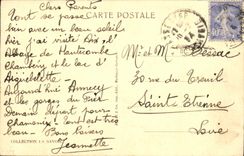 Chers Parents
CARTE POSTALE
Tout se passe
bien avec un beau soleil
Hier j'ai visité
Abbaye de Hautecombe
Chambéry et le lac d'
Aiguebelette
Aujourd'hui Annecy
et les gorges du Fier
Demain départ pour
Chamonix tout est très
beau Bons baisers
Jeannette
Mr et Mme
30 rue du
Saint Etienne
Loire
COLLECTION LA